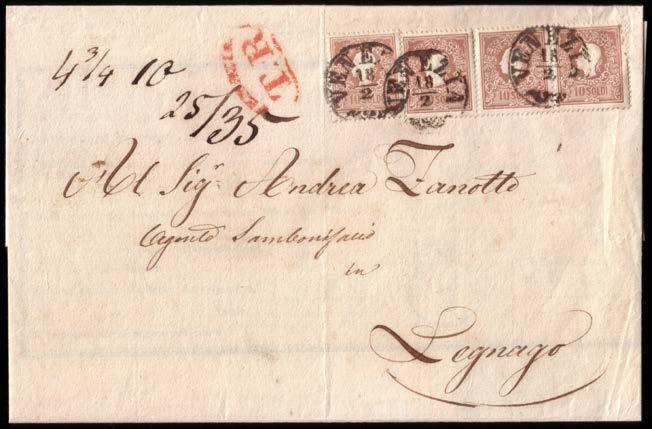 VENEZIA
18/2
VENEZIA
18/2
VENEZIA
18/2
10 SOLDI
10 SOLDI
10 SOLDI
T.R
4 3/4 10
25/35
Al Sigr Andrea Zanotto
Agente Sambonifacio
in
Legnago